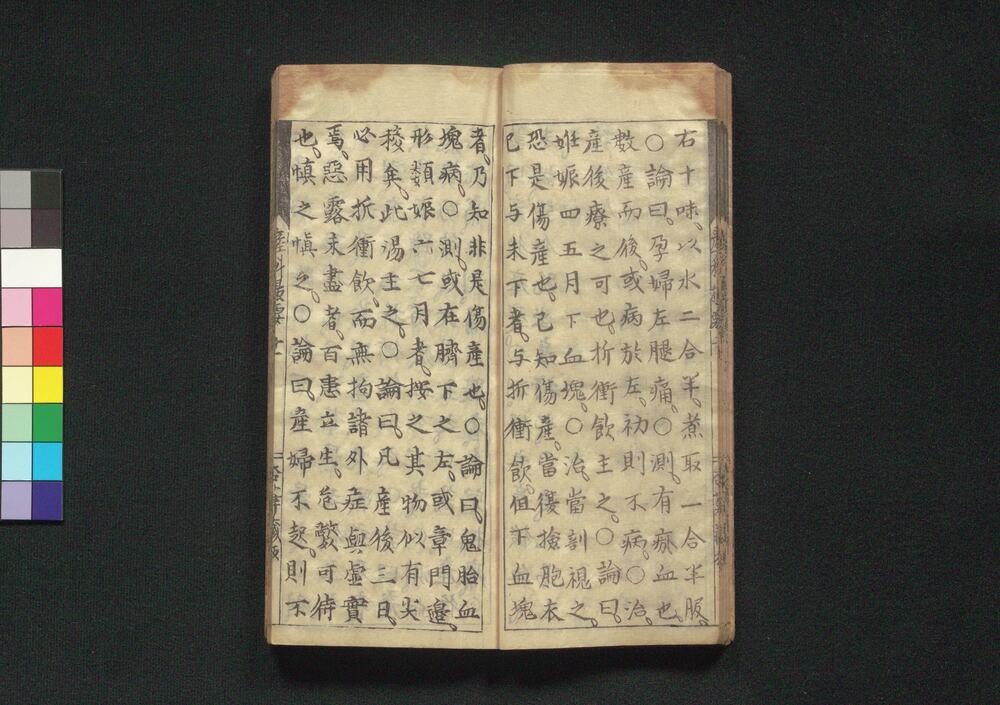 右十味。以水二合半。煮取一合半服。
○論曰。孕婦左腿痛。○測。有瘀血也。
数産而後。或病於左。初則不病。○治。
産後療之可也。折衝飲主之。○論曰。
妊娠四五月下血塊。○治。當剖視之。
恐是傷産也。已知傷産。當復撿胞衣
已下与未下者。与折衝飲。但下血塊
者。乃知非是傷産也。○論曰。鬼胎血
塊病。○測。或在臍下之左。或章門邉。
形類娠六七月者。按之其物似有尖
稜矣。此湯主之。○論曰。凡産後三日。
必用折衝飲。而無拘諸外症與虚實
焉。惡露未盡者。百患立生。危斃可待
也。慎之慎之。○論曰。産婦不起。則不
産科發蒙